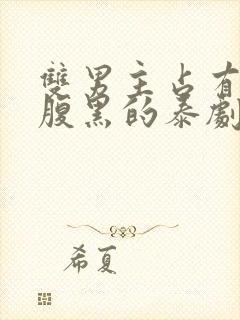 雙男主占有
腹黑的泰劇
希夏